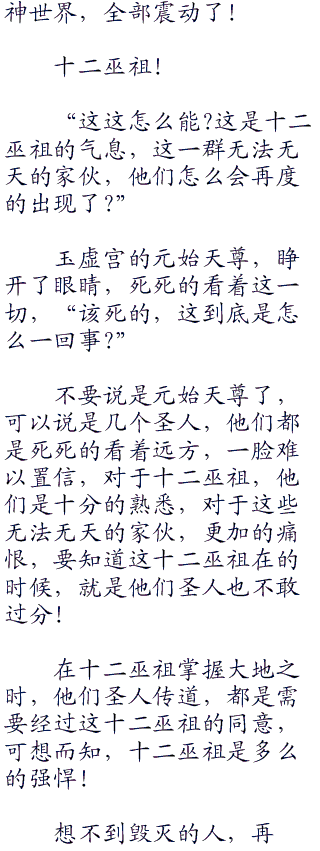 神世界，全部震动了！
十二巫祖！
“这这怎么能?这是十二
巫祖的气息，这一群无法无
天的家伙，他们怎么会再度
的出现了?”
玉虚宫的元始天尊，睁
开了眼睛，死死的看着这一
切，“该死的，这到底是怎
么一回事?”
不要说是元始天尊了，
可以说是几个圣人，他们都
是死死的看着远方，一脸难
以置信，对于十二巫祖，他
们是十分的熟悉，对于这些
无法无天的家伙，更加的痛
恨，要知道这十二巫祖在的
时候，就是他们圣人也不敢
过分！
在十二巫祖掌握大地之
时，他们圣人传道，都是需
要经过这十二巫祖的同意，
可想而知，十二巫祖是多么
的强悍！
想不到毁灭的人，再